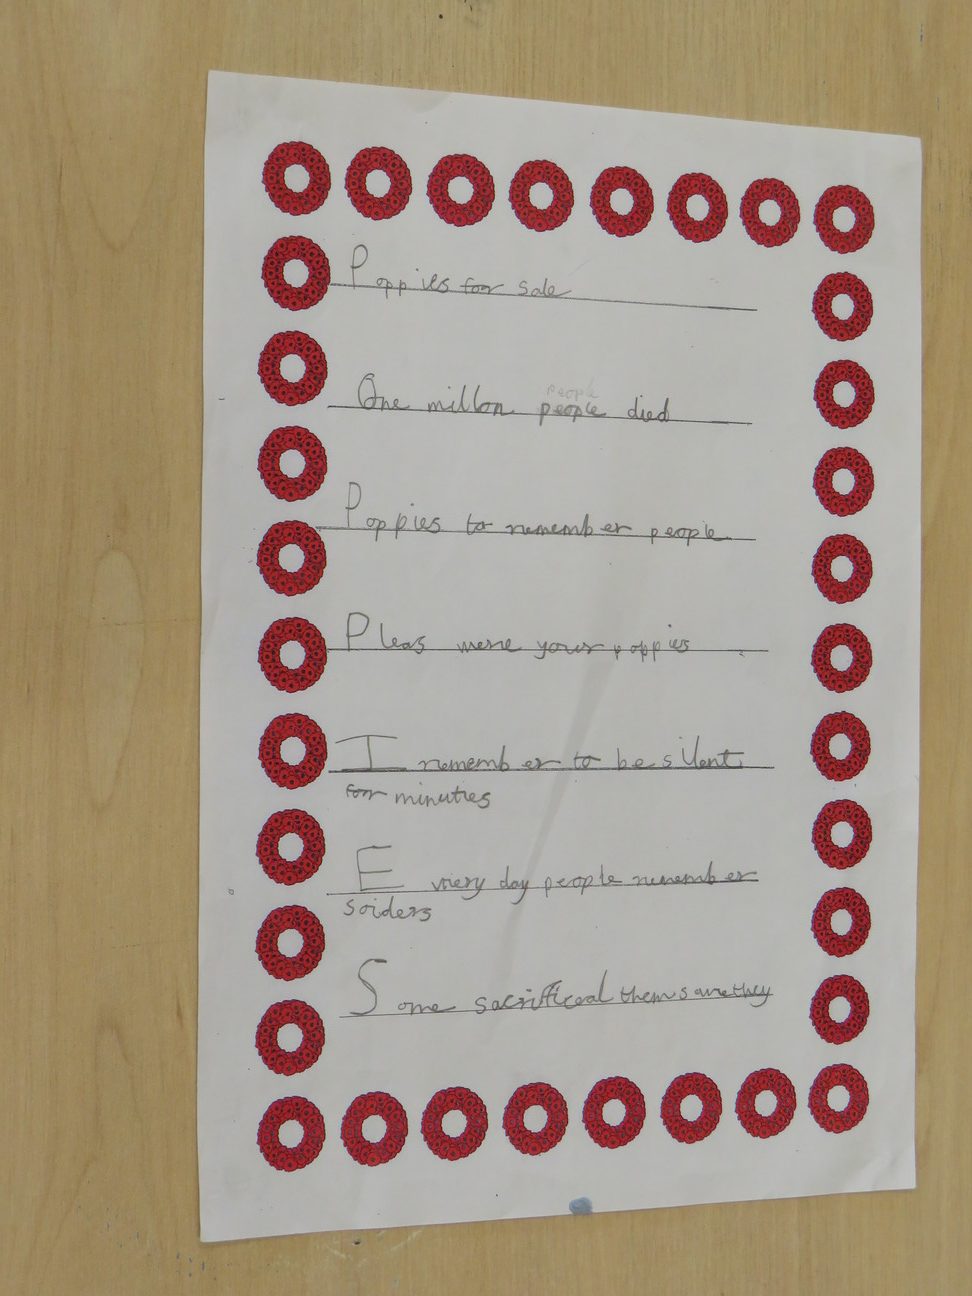 Poppies for sale
people
One millon people died
Poppies to remember people
Pleas were your poppies
I rememb er to be silent
for minuties
E vriery day people rememb er
soiders
Some sacrifficeal